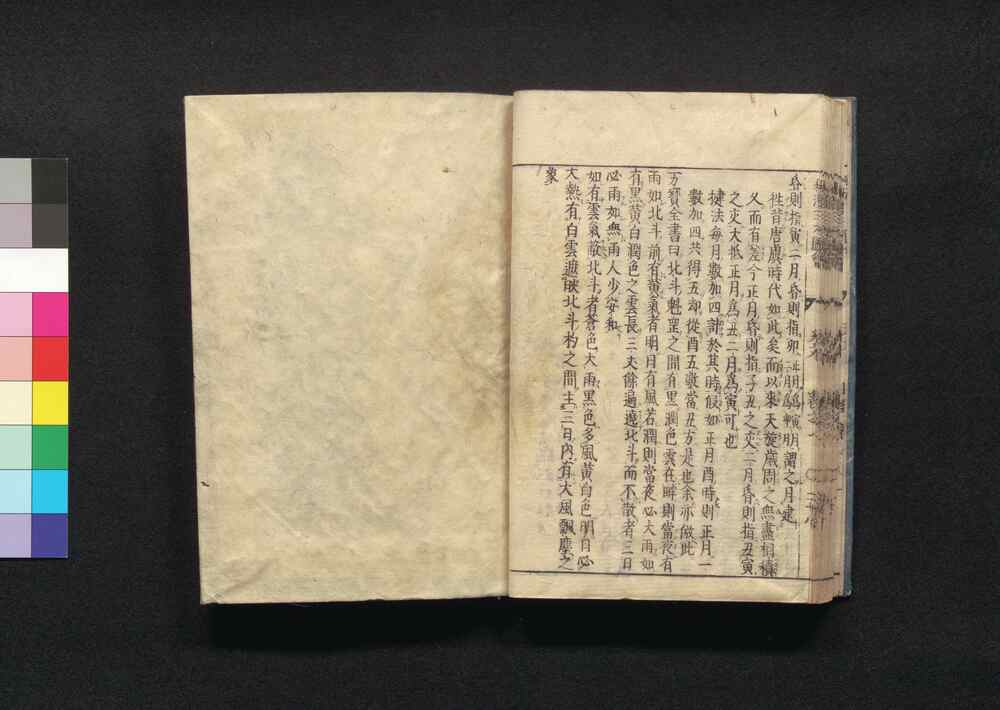 昏則指寅二月昏則指卯正月為寅二月為卯謂之月建
往昔唐虞時代如此矣而以來天旋歳周之無盡相積
又而有差今正月昏則指子丑之交二月昏則指丑寅
之交大抵正月為丑二月為寅可也
捷法每月數加四計於其時候如正月酉時則正月一
數加四共得五却從酉五數當丑方是也余亦倣此
万寶全書曰北斗魁罡之間有黒潤色雲在時則當夜有
雨如北斗前有黄氣者明日有風若潤則當夜必大雨如
有黒黄白潤色之雲長三丈餘過遶北斗而不散者三日
必雨如無雨人少安和
如有雲氣蔽北斗者蒼色大雨黒色多風黄白色明日必
大熱有白雲遮映北斗杓之間主三日内有大風飄塵之
象